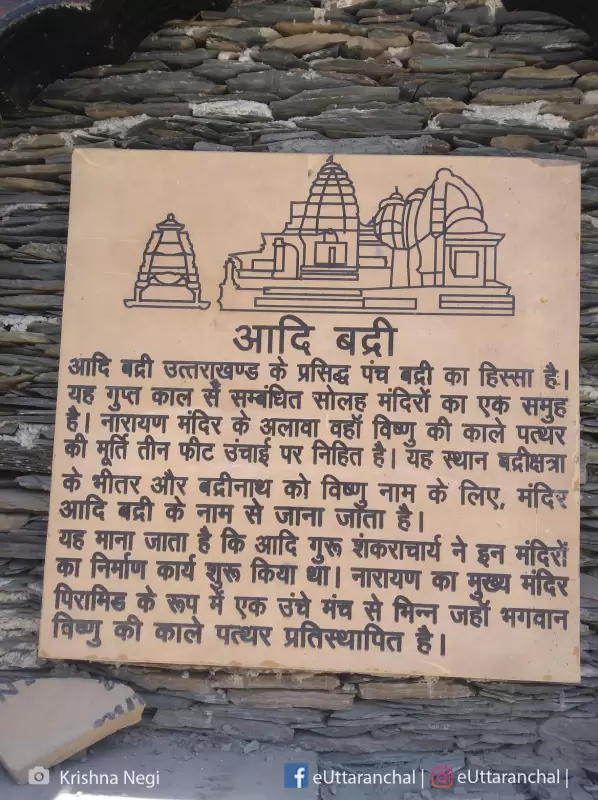 आदि बद्री
आदि बद्री उत्तराखण्ड के प्रसिद्ध पंच बद्री का हिस्सा है।
यह गुप्त काल सें सम्बंधित सोलह मंदिरों का एक समुह
है। नारायण मंदिर के अलावा वहॉ विष्णु की काले पत्थर
की मूर्ति तीन फीट उंचाई पर निहित है। यह स्थान बद्रीक्षत्रा
के भीतर और बद्रीनाथ को विष्णु नाम के लिए, मंदिर
आदि बद्री के नाम से जाना जाता है।
यह माना जाता है कि आदि गुरू शंकराचार्य ने इन मंदिरों
का निर्माण कार्य शुरू किया था। नारायण का मुख्य मंदिर
पिरामिड के रूप में एक उंचे मंच से भिन्न जहॉ भगवान
विष्णु की काले पत्थर प्रतिस्थापित है।
Krishna Negi
eUttaranchal | eUttaranchal |